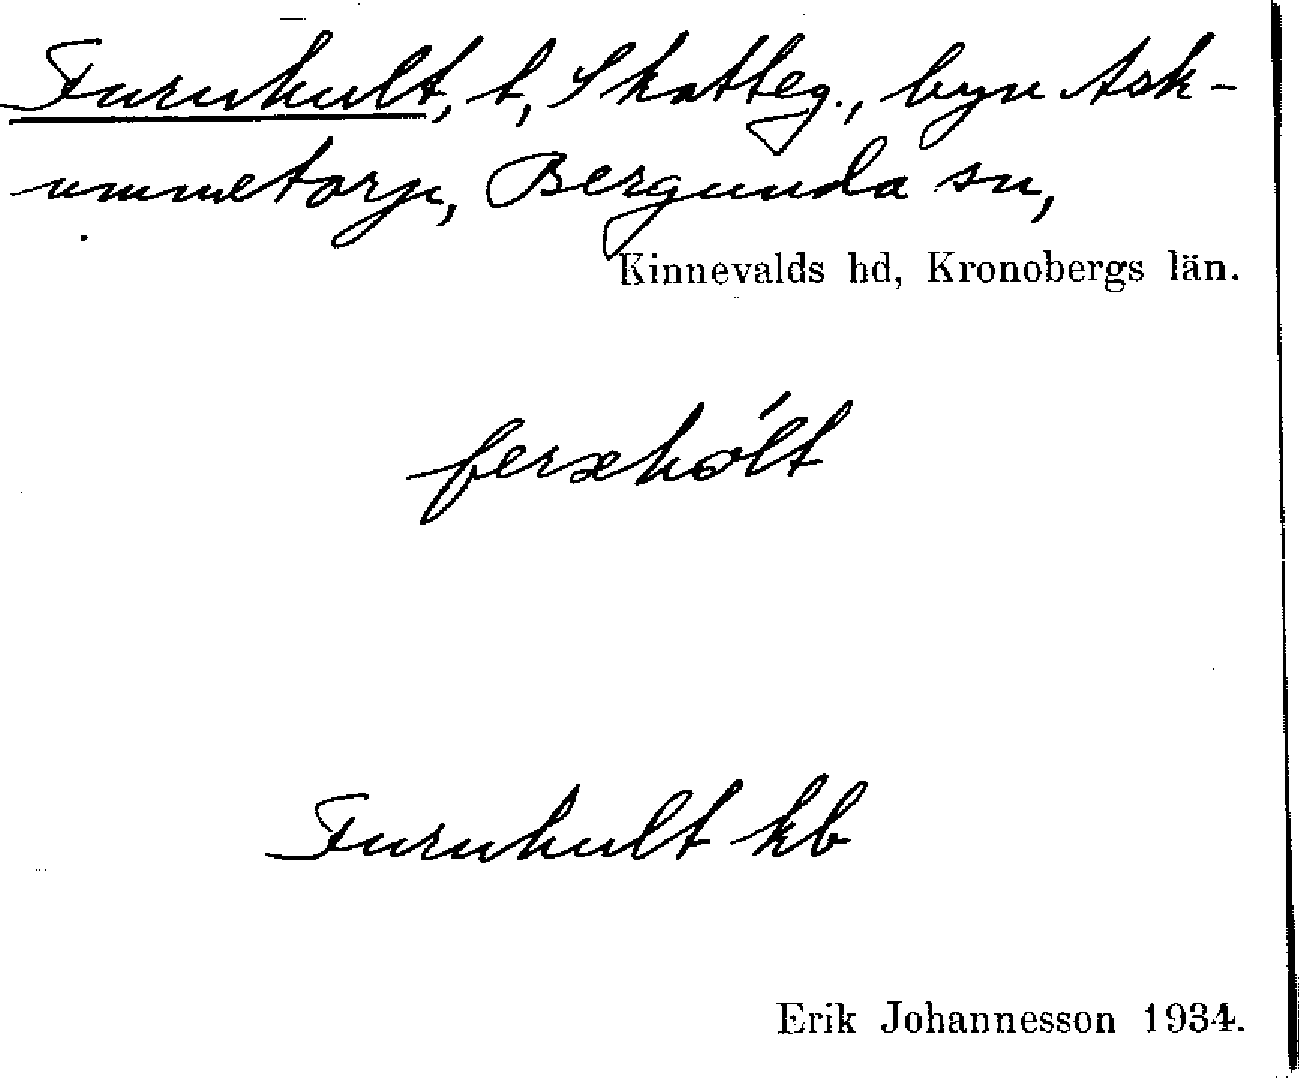 Furuhult, t, Skatteg., byn Ask-
ummetorp, Bergunda sn,
Kinnevalds hd, Kronobergs län.
feræhólt
Furuhult kb
Erik Johannesson 1934.